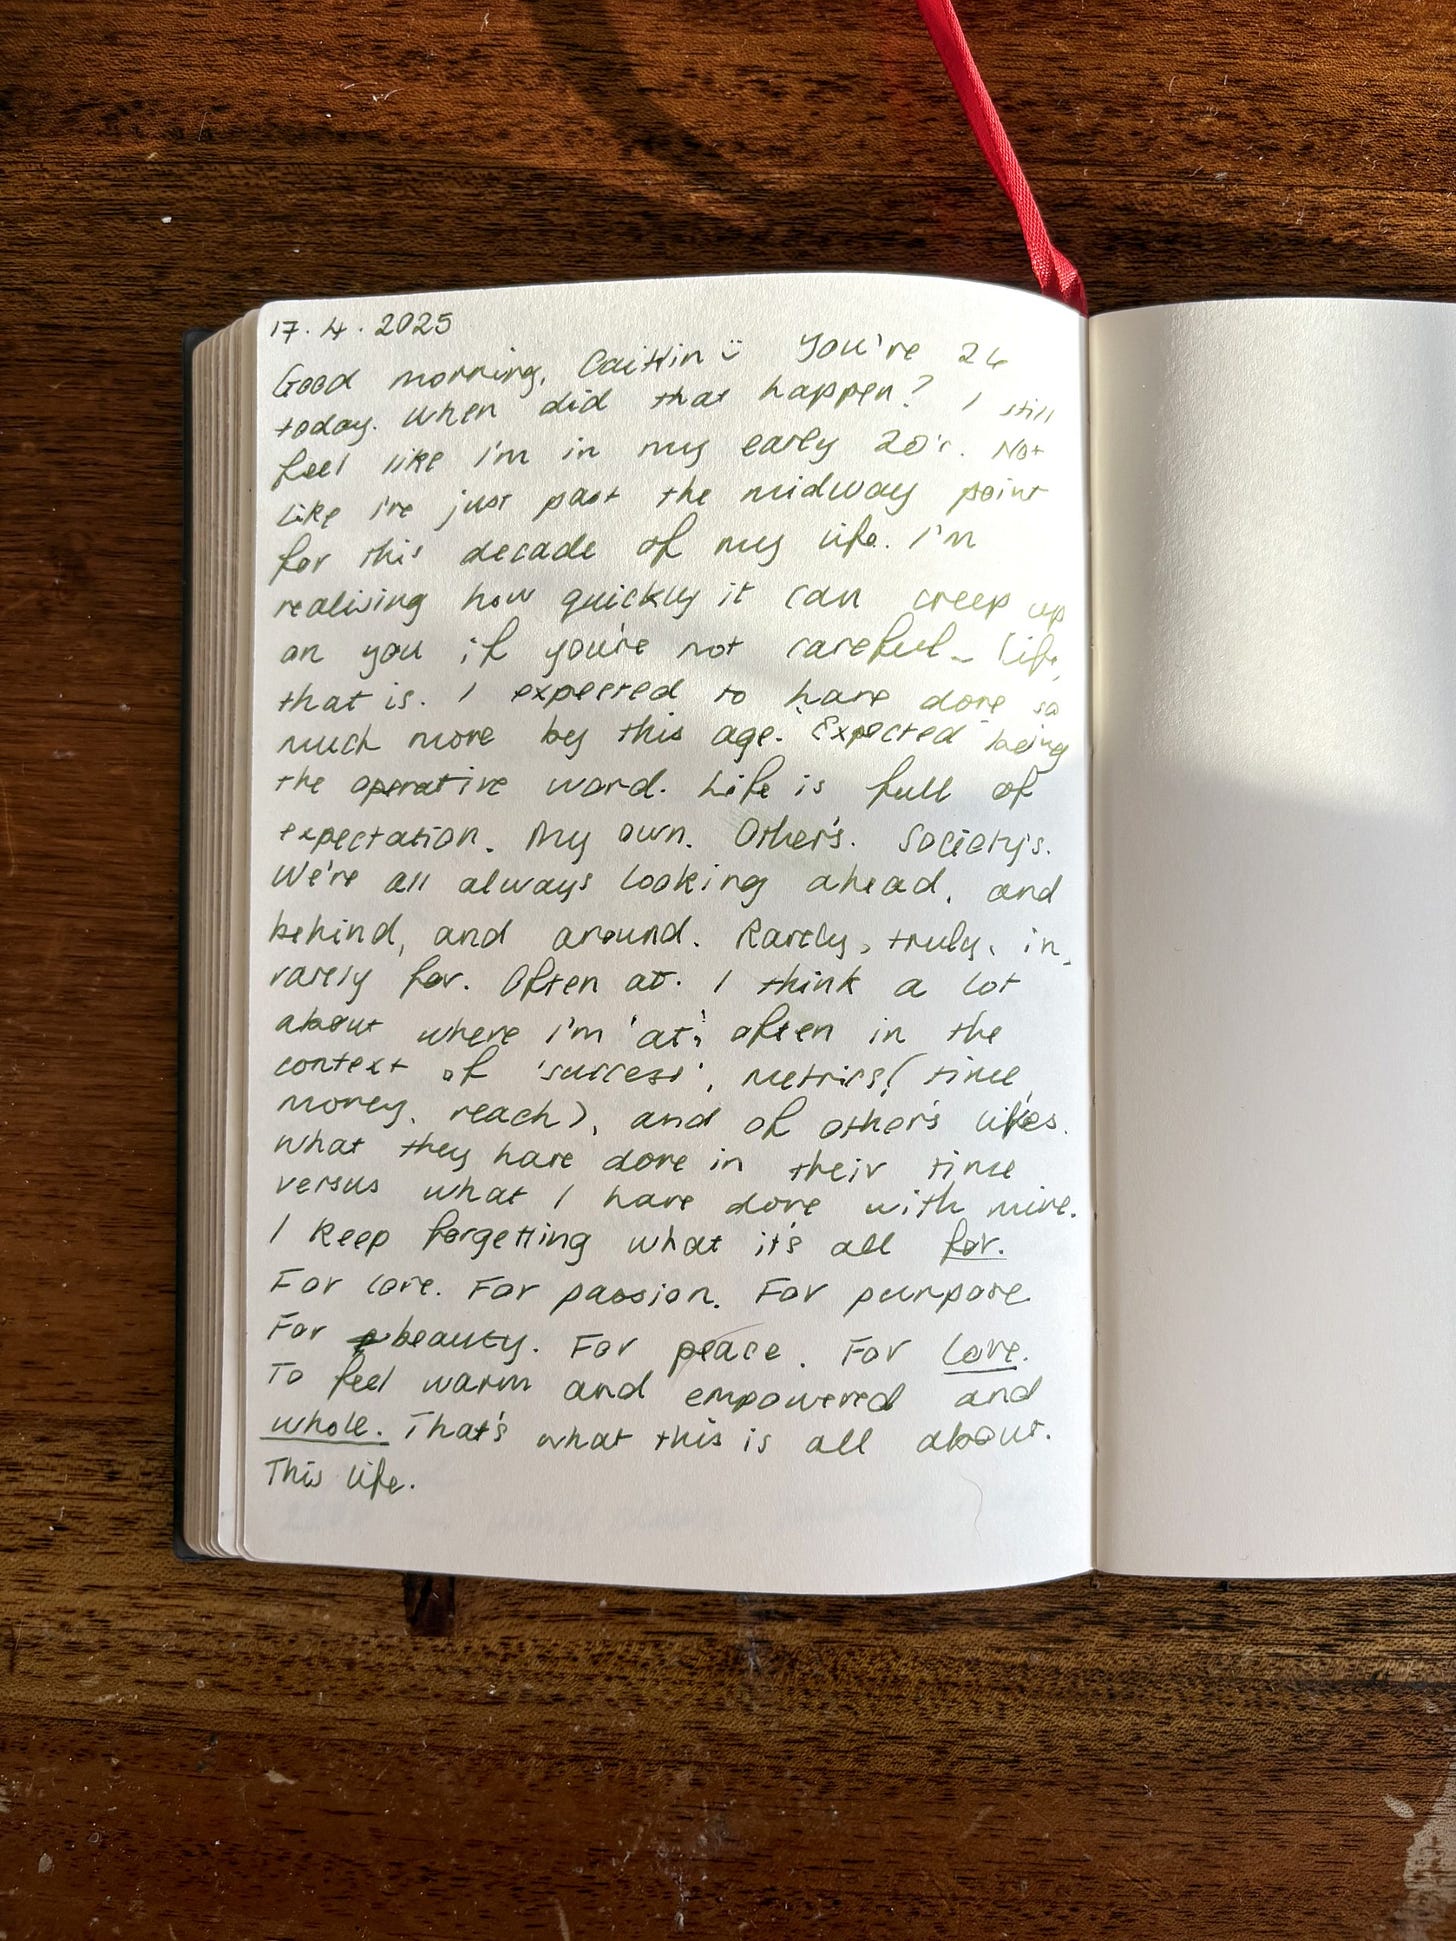 17.4.2025
Good morning, Caitlin ü You're 26
today. When did that happen? I still
feel like I'm in my early 20's. Not
like I've just past the midway point
for this decade of my life. I'm
realising how quickly it can creep up
on you if you're not careful – life,
that is. I expected to have done so
much more by this age. Expected being
the operative word. Life is full of
expectation. My own. Other's. Society's.
We're all always looking ahead, and
behind, and around. Rarely, truly, in,
rarely for. Often at. I think a lot
about where I'm 'at', often in the
context of 'success', metrics (time,
money, reach), and of other's lifes.
What they have done in their time
versus what I have done with mine.
I keep forgetting what it's all for.
For love. For passion. For purpose
For beauty. For peace. For love.
To feel warm and empowered and
whole. That's what this is all about.
This life.